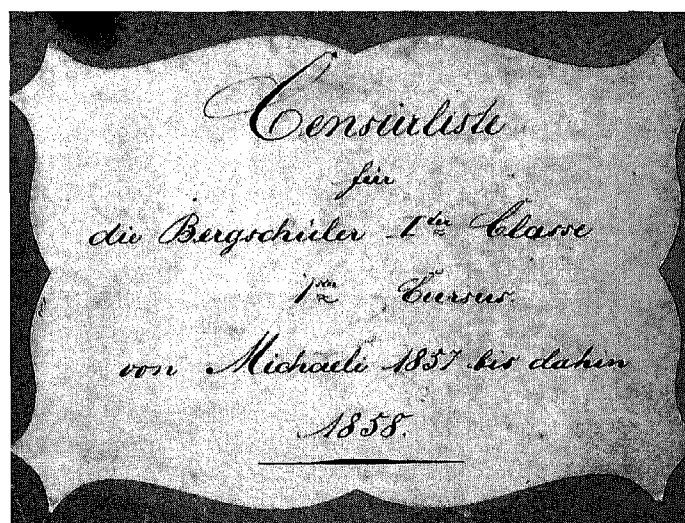 Censurliste
für
die Bergschüler 1ster Classe
1ster Cursus.
von Michaeli 1857 bis dahin
1858.